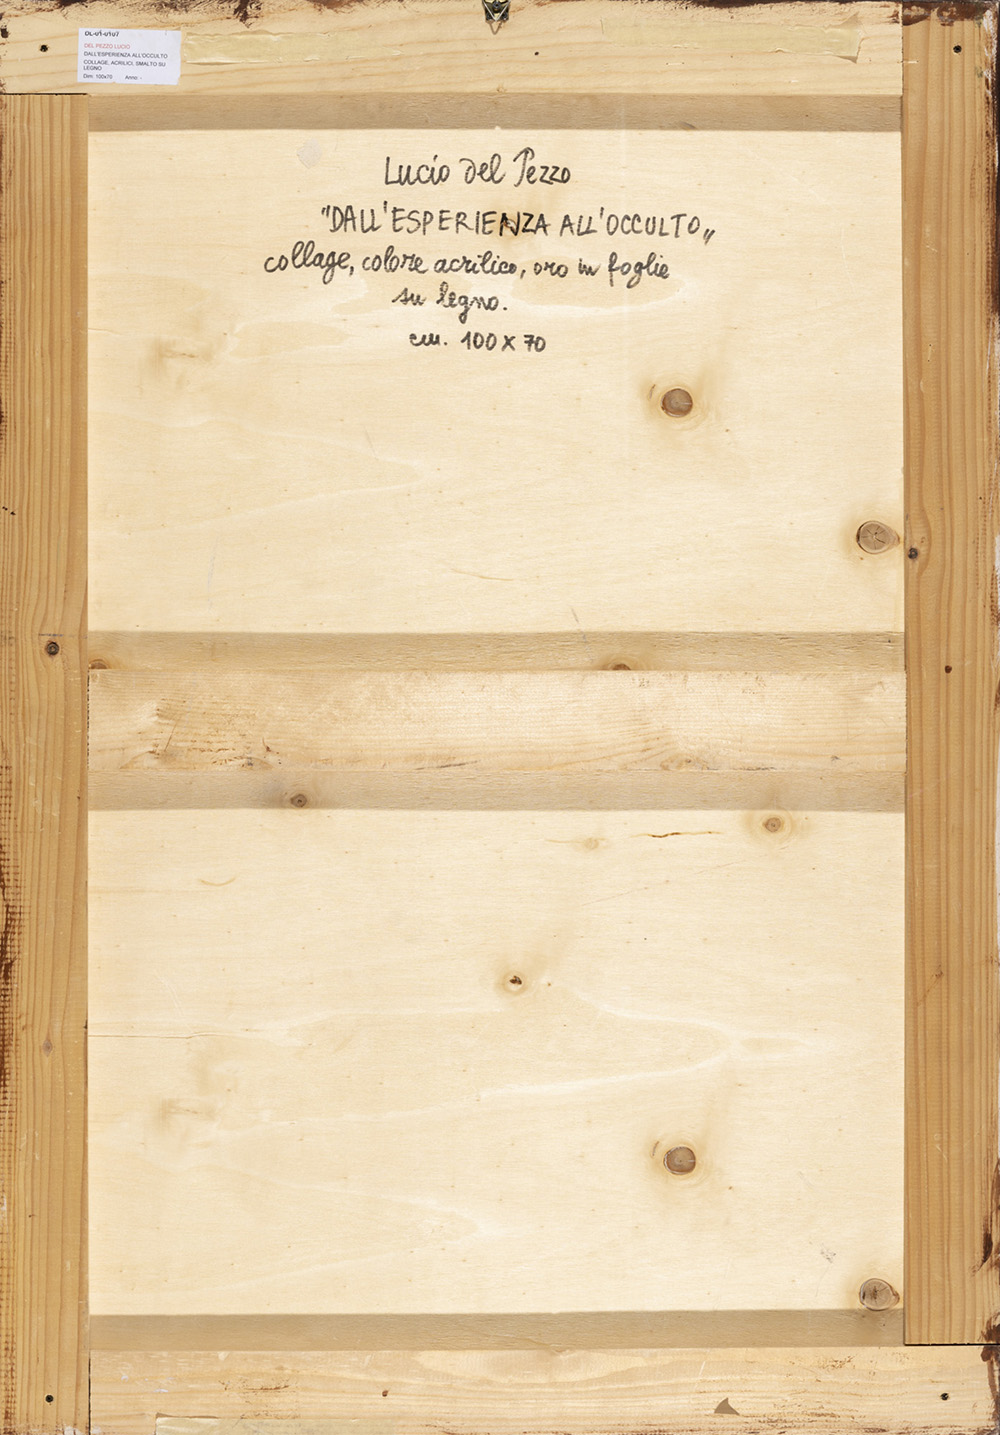 DEL PEZZO LUCIO
DALL'ESPERIENZA ALL'OCCULTO
COLLAGE, ACRILICI, SMALTO SU
LEGNO
Dim: 100x70 Anno: -
Lucio Del Pezzo
"DALL'ESPERIENZA ALL'OCCULTO„
collage, colore acrilico, oro in foglie
su legno.
cm. 100 X 70